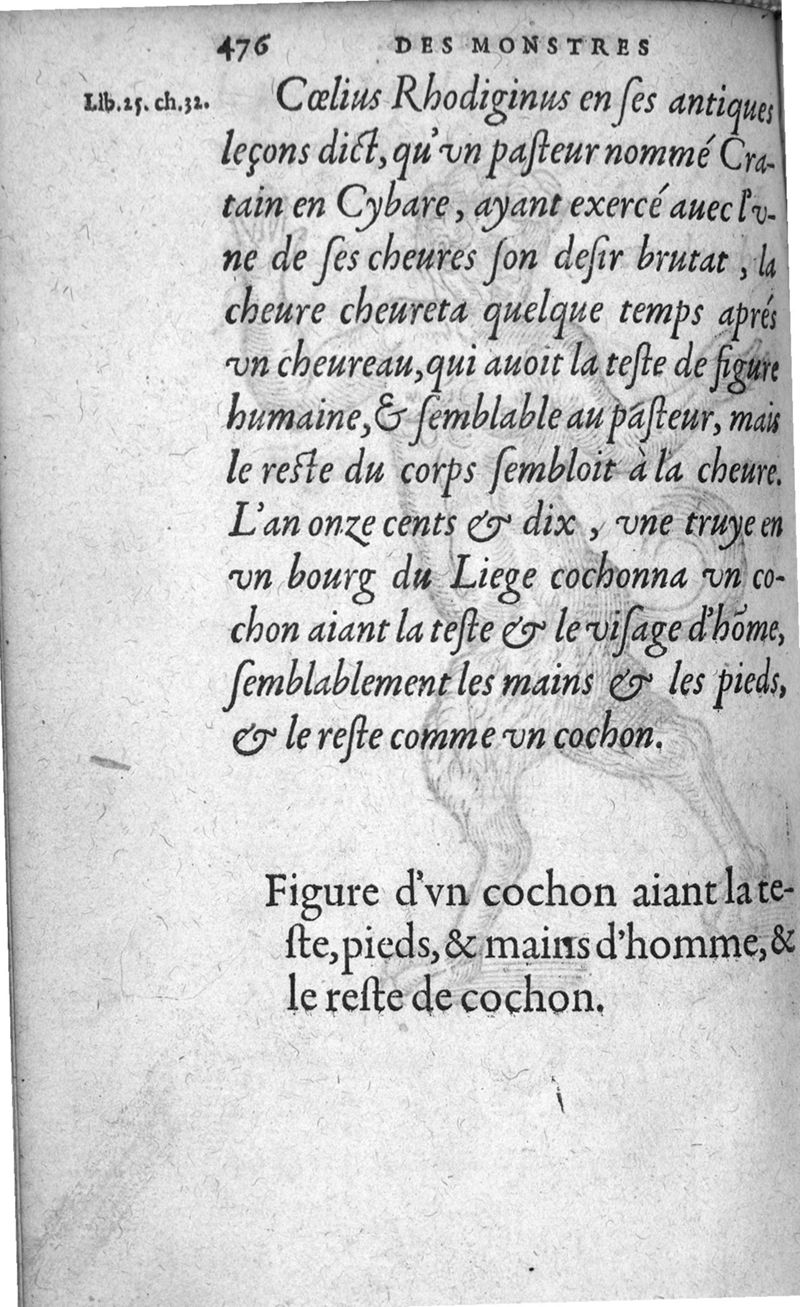 476 DES MONSTRES
Lib.25. ch.32. Cœlius Rhodiginus en ſes antiques
leçons dict, qu'vn paſteur nommé Cra-
tain en Cybare, ayant exercé auec l'v-
ne de ſes cheures ſon deſir brutat, la
cheure cheureta quelque temps aprés
vn cheureau, qui auoit la teſte de figure
humaine, & ſemblable au paſteur, mais
le reſte du corps ſembloit à la cheure.
L'an onze cents & dix, vne truye en
vn bourg du Liege cochonna vn co-
chon aiant la teſte & le viſage d'hõme,
ſemblablement les mains & les pieds,
& le reſte comme vn cochon.
Figure d'vn cochon aiant la te-
ſte, pieds, & mains d'homme, &
le reſte de cochon.